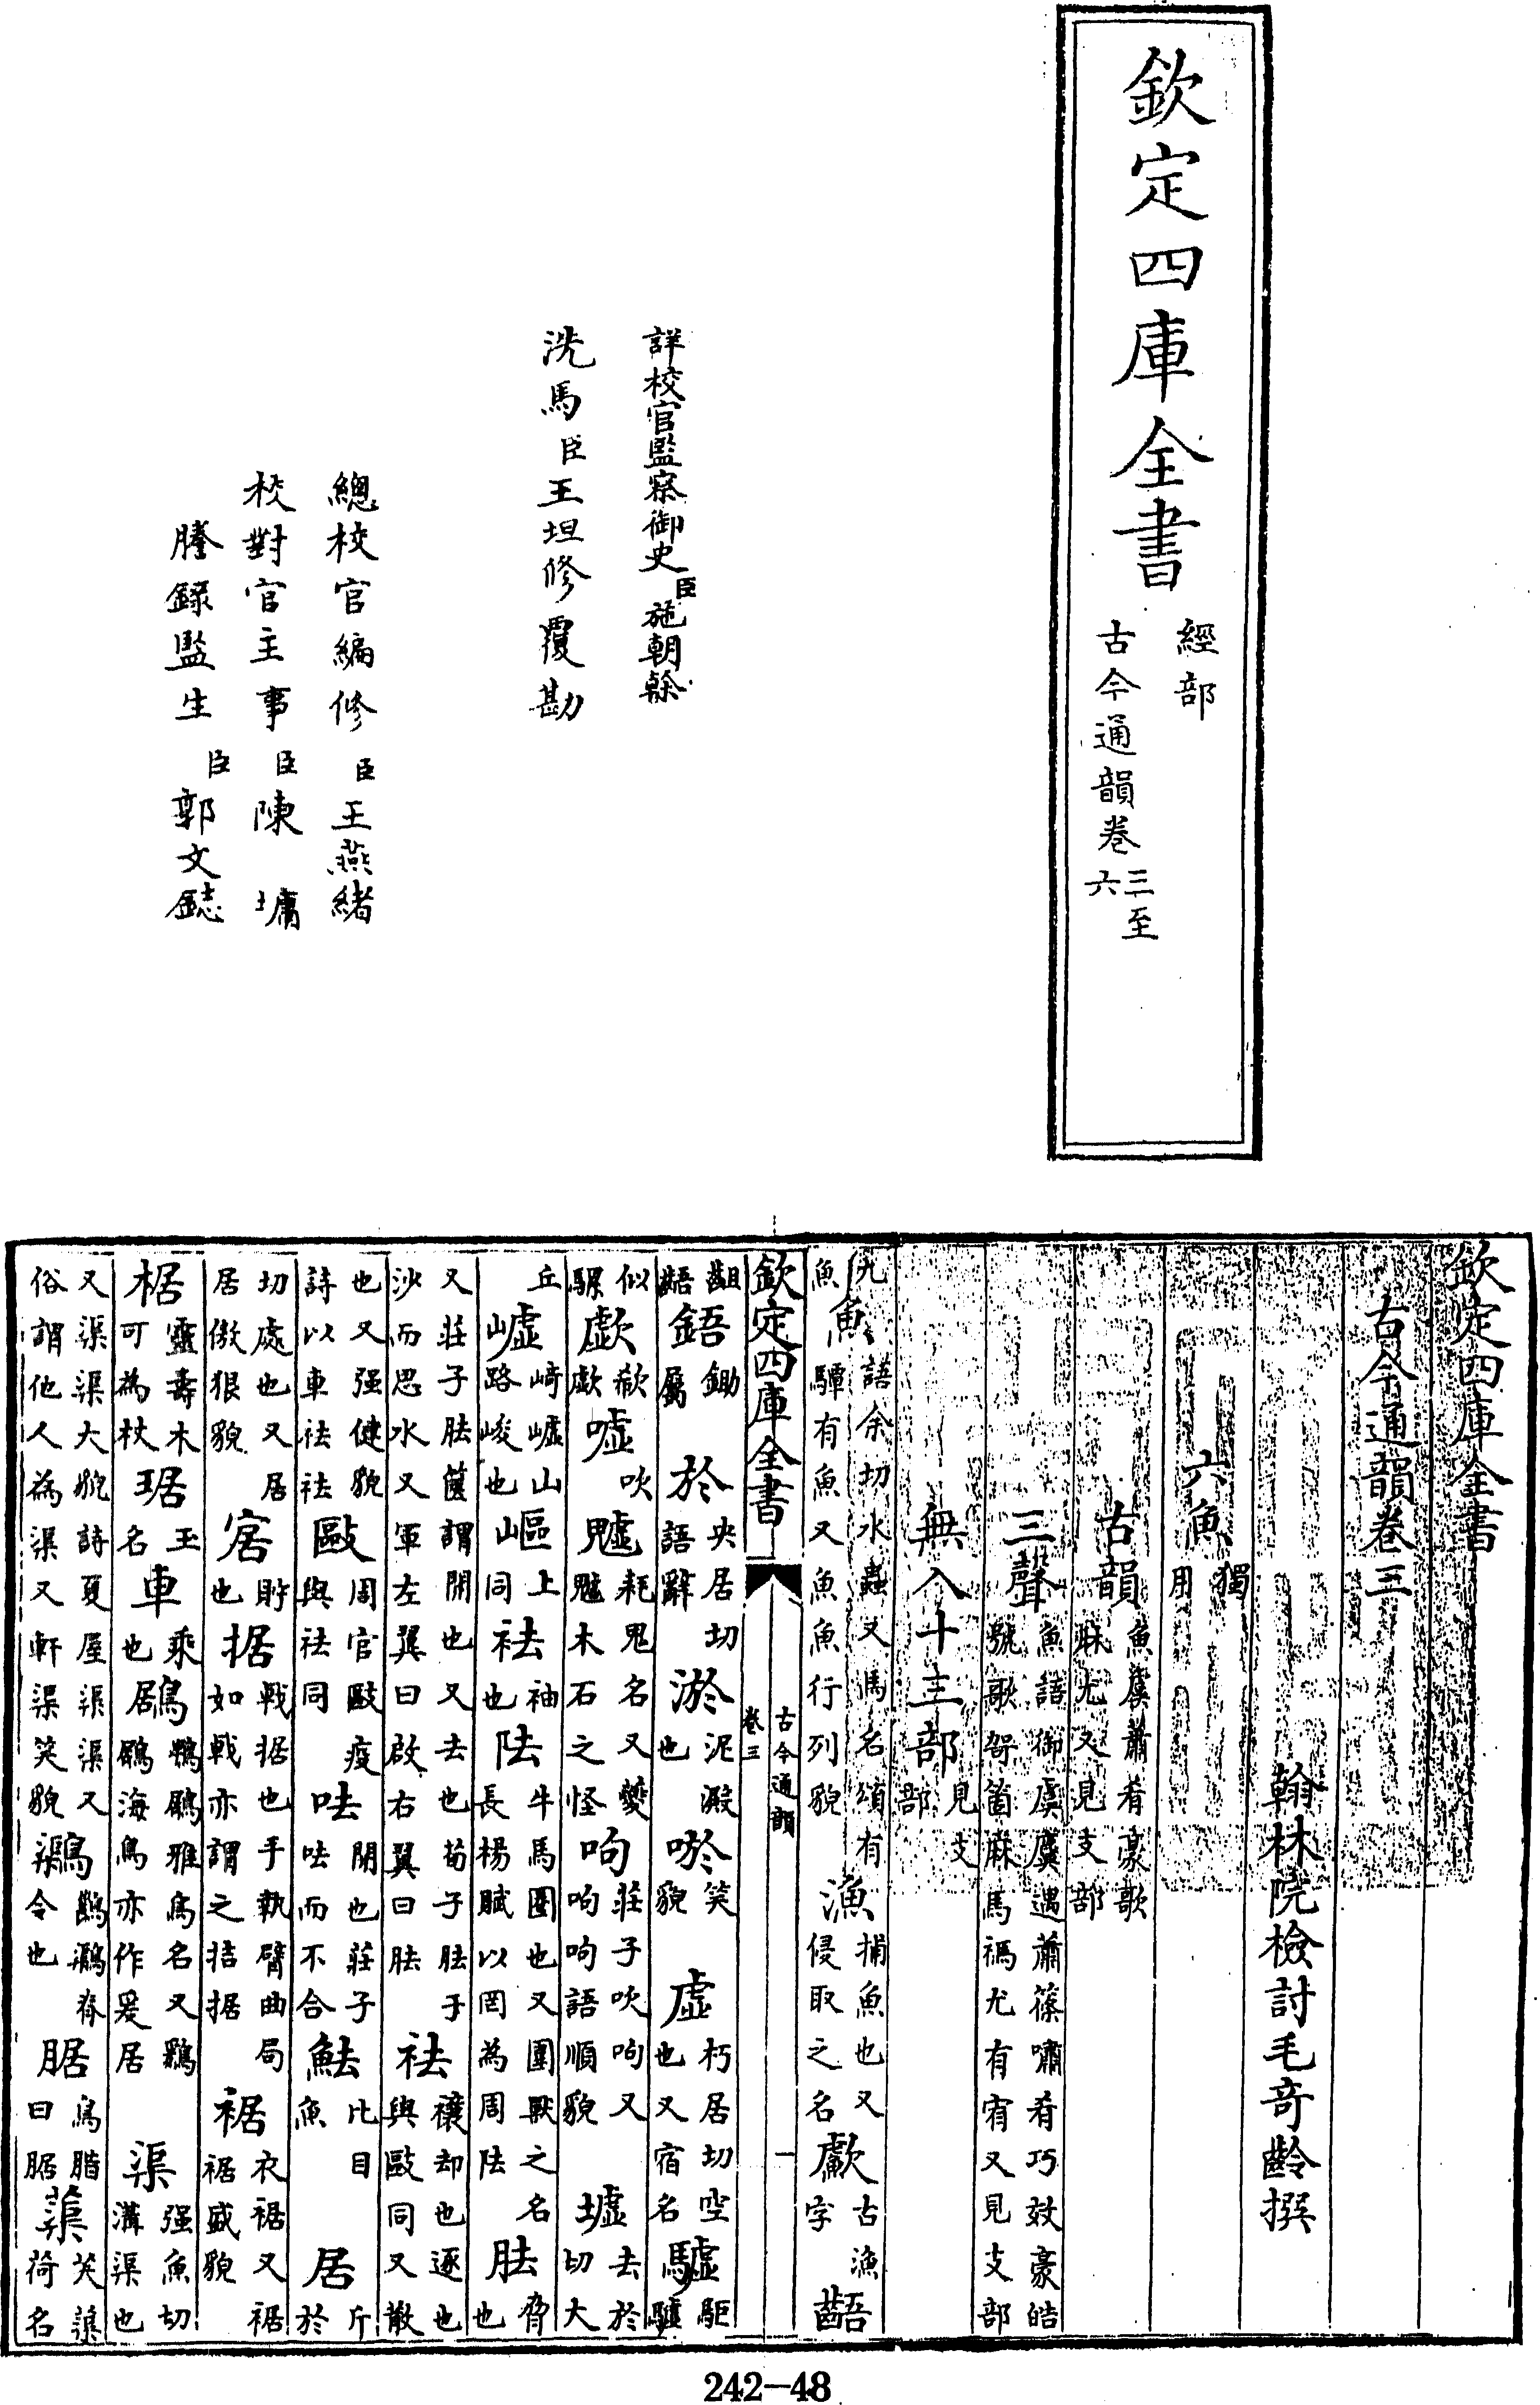 欽定四庫全書
經部
古今通韻卷三至六
詳校官監察御史臣施朝榦
洗馬臣王坦修覆勘
總校官編修臣王燕緒
校對官主事臣陳墉
謄錄監生臣郭文鋕
欽定四庫全書
古今通韻卷三
翰林院檢討毛奇齡撰
六魚獨用
古韻魚虞蕭肴豪歌麻尤又見支部
三聲魚語御虞麌遇蕭篠嘯肴巧效豪皓號歌哿箇麻馬禡尤有宥又見支部
無入十三部見支部
魚語余切水蟲又馬名頌有魚驔有魚又魚魚行列貌漁捕魚也又侵取之名䱷古漁字齬
欽定四庫全書
古今通韻
卷三
一
齟齬鋙鋤屬於央居切語辭淤泥澱也唹笑貌虛朽居切空也又宿名驉駏驉
似騾歔欷歔嘘吹魖耗鬼名又夔魖木石之怪呴莊子吹呴又呴呴語順貌墟去於切大
丘㠊崎㠊山路峻也嶇上同袪袖也阹牛馬圈也又圍獸之名長楊賦以罔為周阹胠脅也
又莊子胠篋謂開也又去也荀子胠于沙而思水又軍左翼曰啟右翼曰胠祛禳却也逐也與敺同又散
也又强健貌詩以車袪袪敺周官敺疫與袪同呿開也莊子呿而不合魼比目魚居斤於
切處也又居居傲狠貌㝒貯也据戟挶也手執臂曲局如戟亦謂之拮据裾衣裾又裾裾盛貌
椐靈壽木可為杖琚玉名車乘也鶋鵯鶋雅烏名又鶢鶋海鳥亦作爰居渠强魚切溝渠也
又渠渠大貌詩夏屋渠渠又俗謂他人為渠又軒渠笑貌脊令也腒鳥腊曰腒蕖芙蕖荷名
242-48